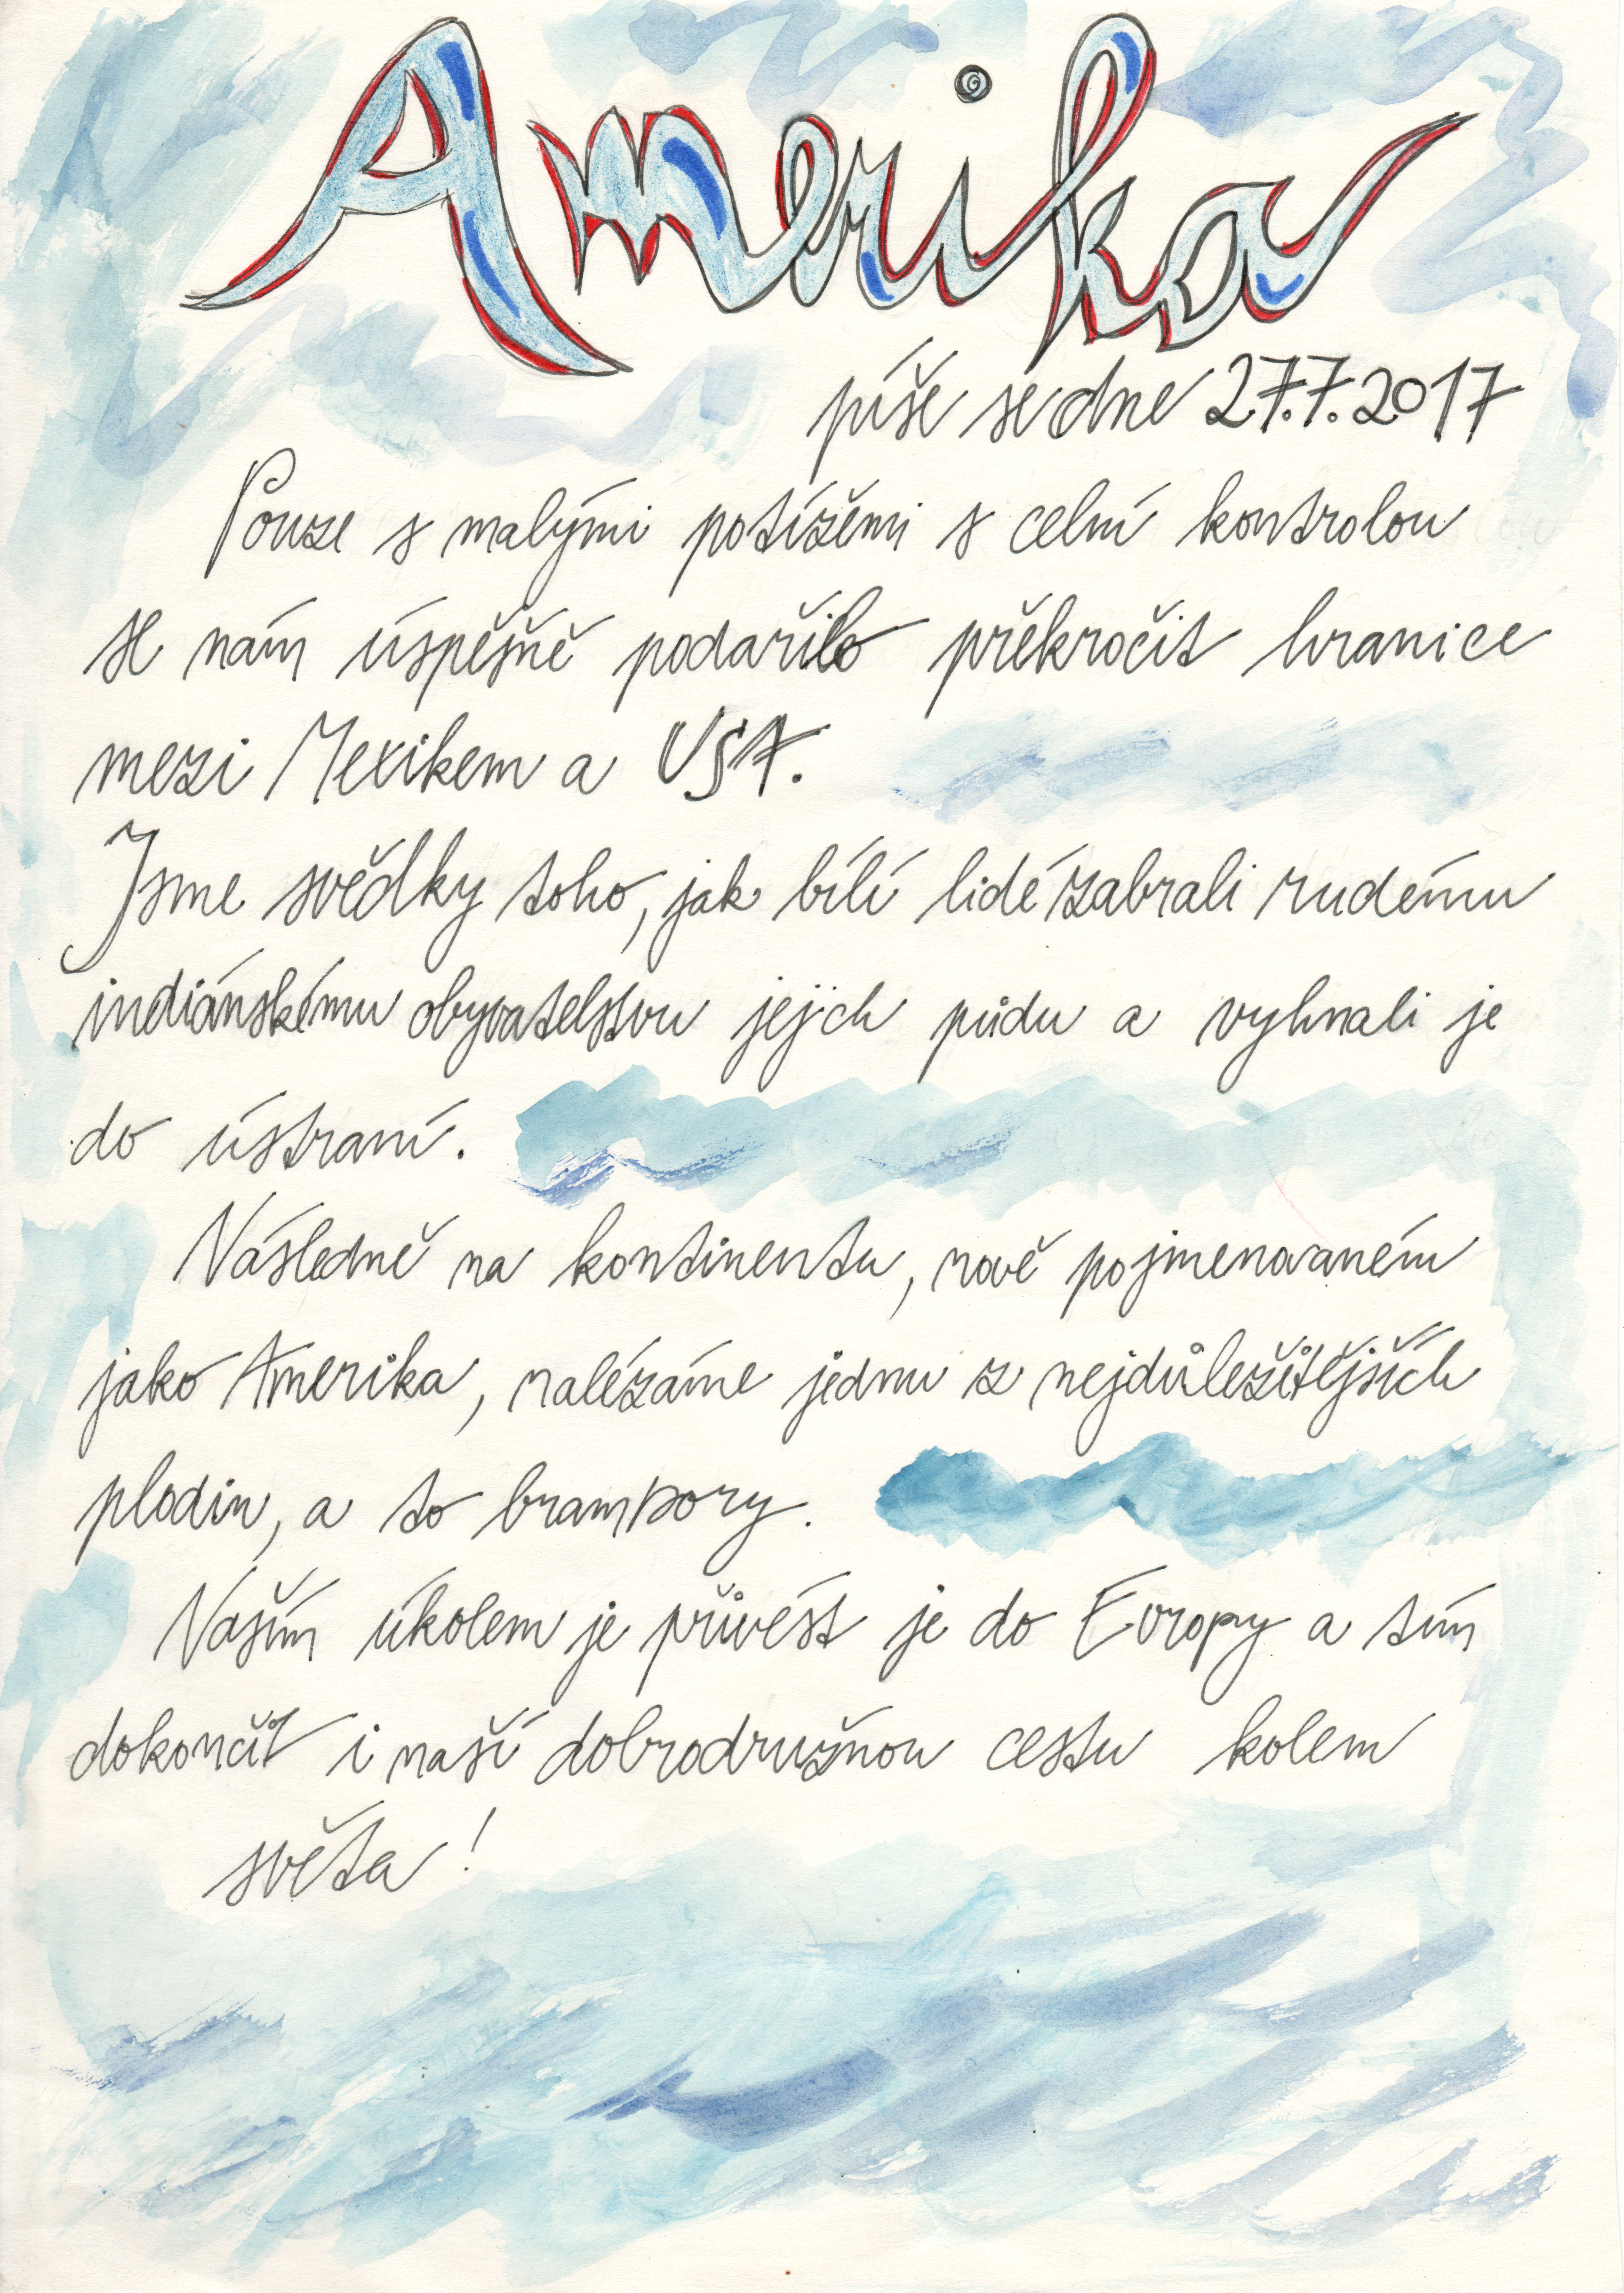 Amerika
píše se dne 27.7.2017
Pouze s malými potížemi s celní kontrolou
se nám úspěšně podařilo překročit hranice
mezi Mexikem a USA.
Jsme svědky toho, jak bílí lidé zabrali rudému
indiánskému obyvatelstvu jejich půdu a vyhnali je
do ústraní.
Následně na kontinentu, nově pojmenovaném
jako Amerika, nalézáme jednu z nejdůležitějších
plodin, a to brambory.
Naším úkolem je přivést je do Evropy a tím
dokončit i naší dobrodružnou cestu kolem
světa!